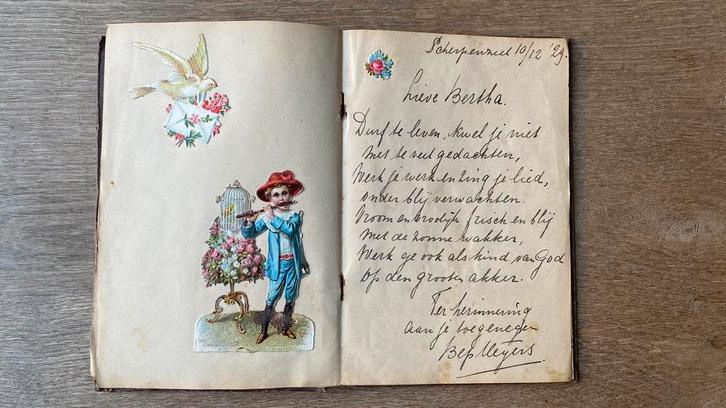 Scherpenzeel 10/12 '29.
Lieve Bertha.
Durf te leven, kwel je niet
Met te veel gedachten,
Werk je werk en zing je lied,
onder blij verwachten.
Vroom en vroolijk, frisch en blij
Met de zonne wakker,
Werk je ook als kind van God
Op den grooten akker.
Ter herinnering
aan je toegenegen
Bep Meyers